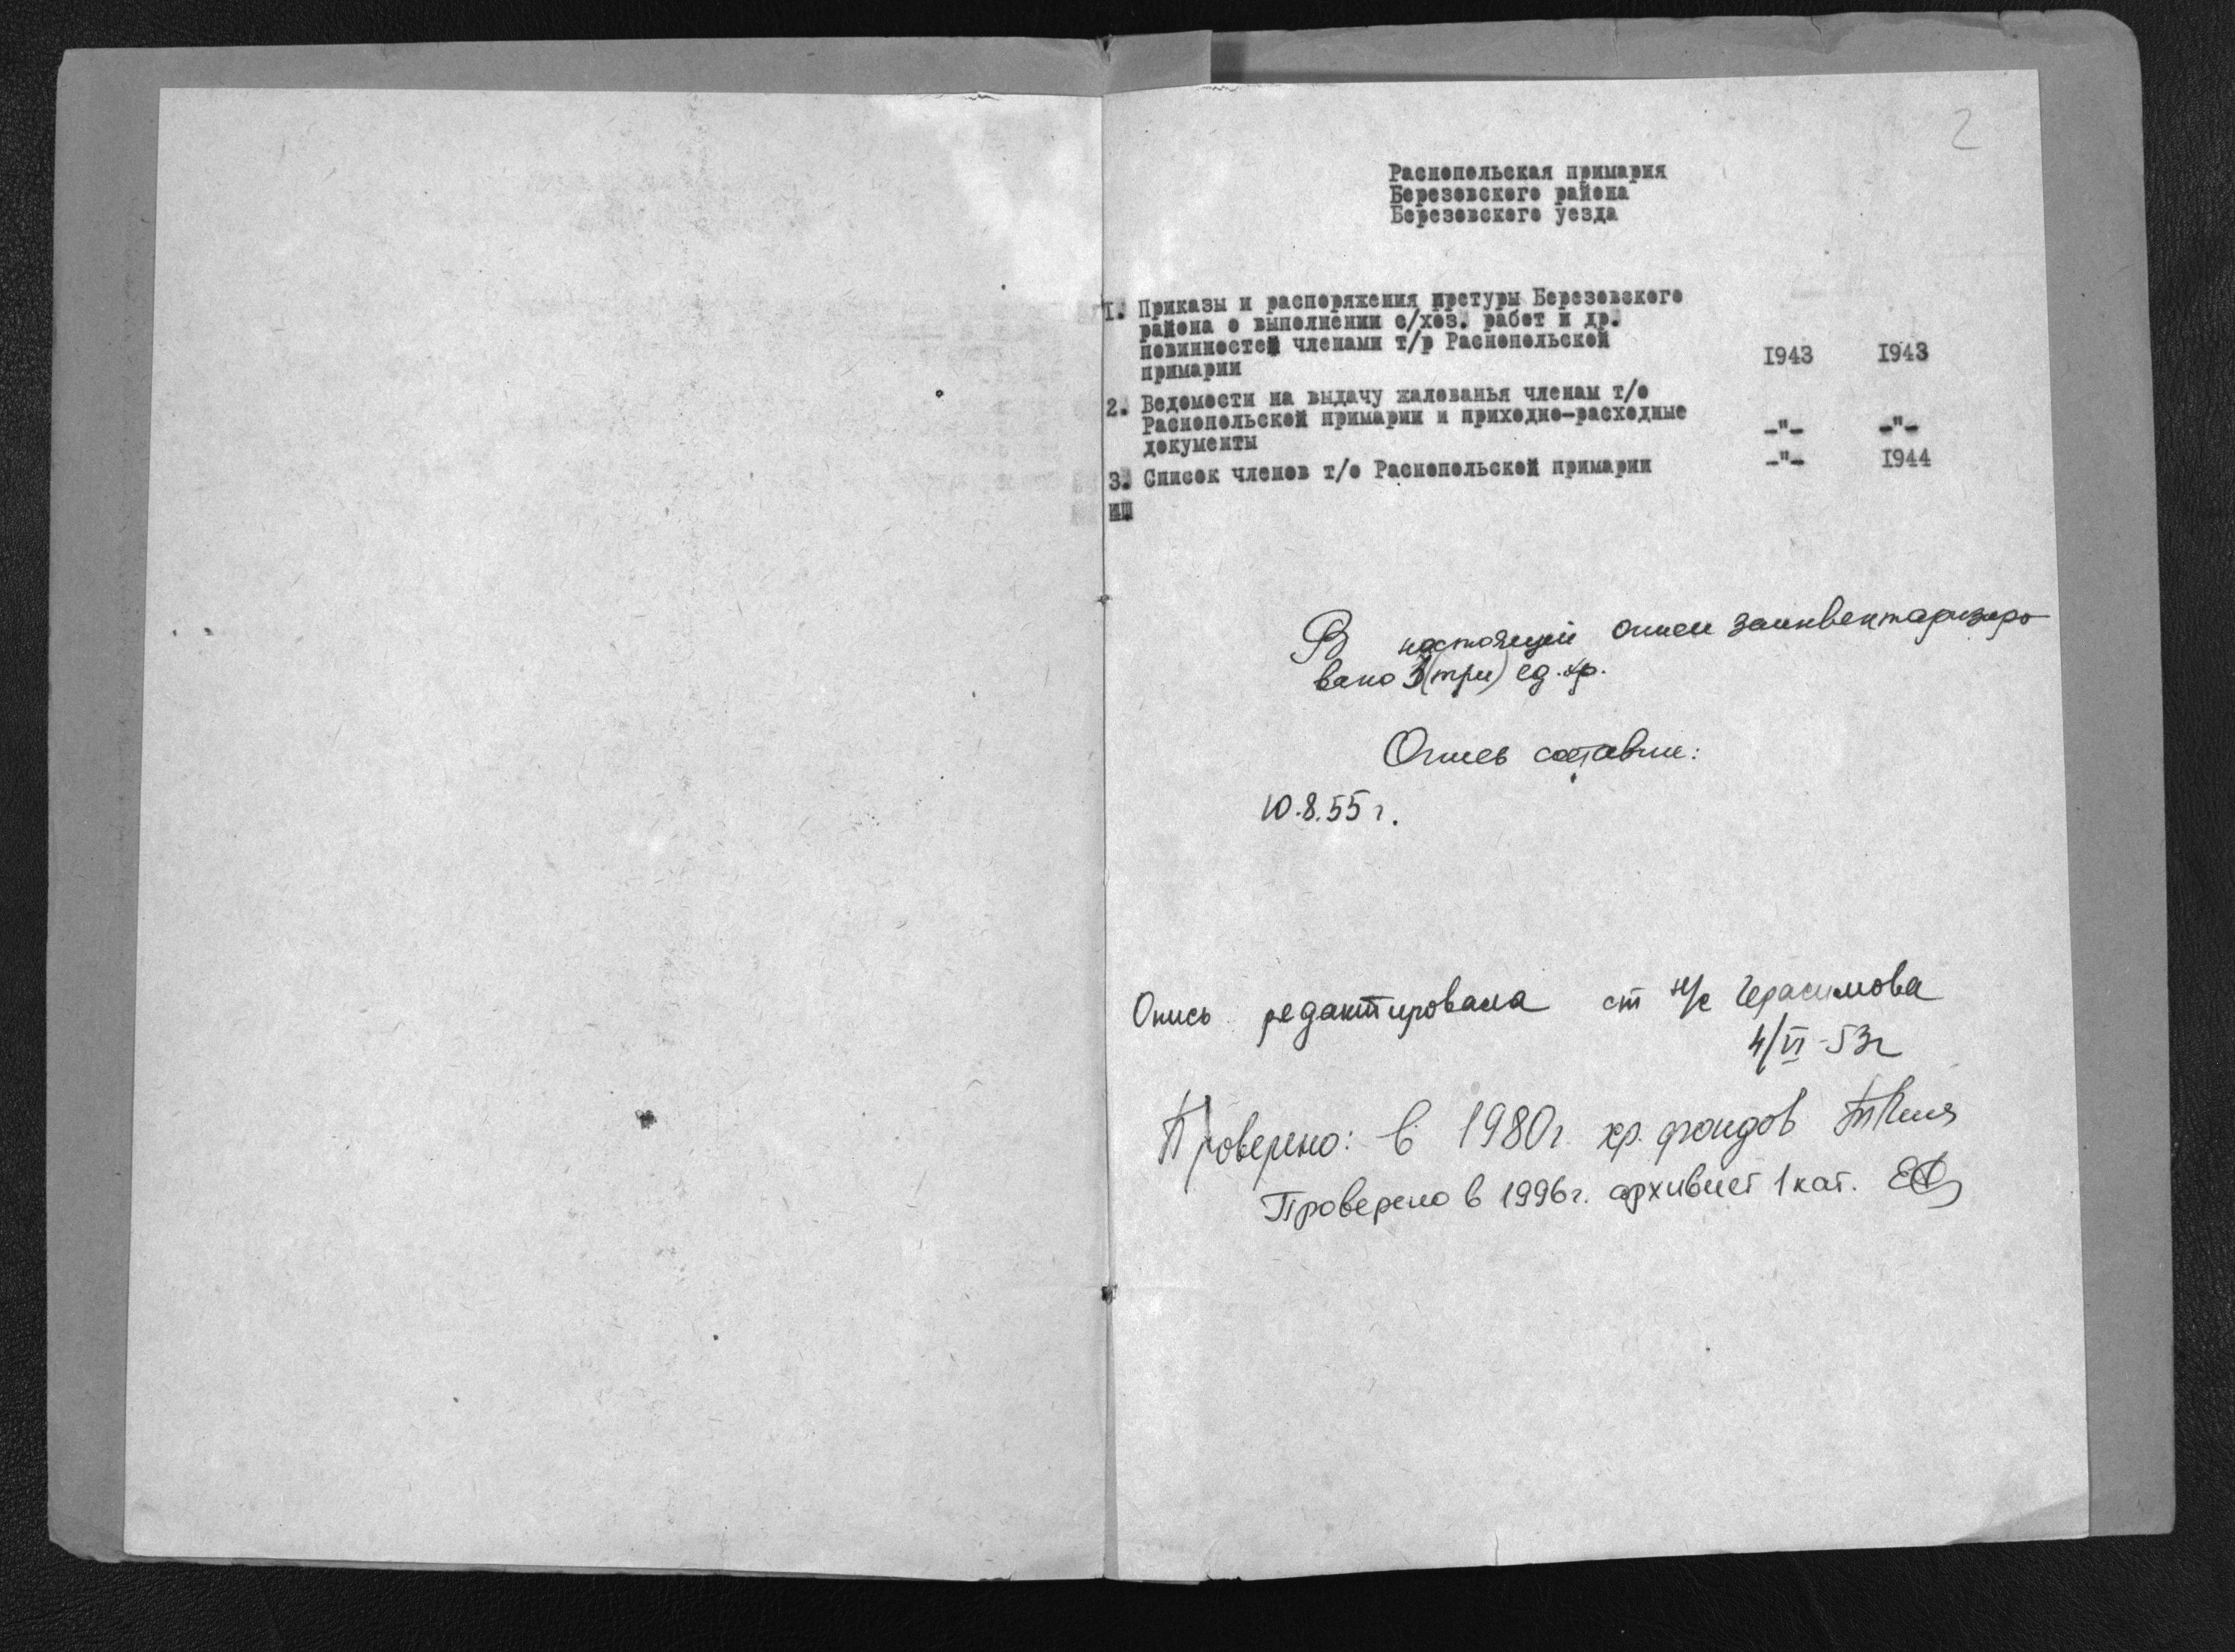 2
Раснопольская примария
Березовского района
Березовского уезда
I. Приказы и распоряжения претуры Березовского
района о выполнении с/хоз. работ и др.
повинностей членами т/р Раснопольской
примарии 1943 1943
2. Ведомости на выдачу жалованья членам т/о
Раснопольской примарии и приходно-расходные
документы -"- -"-
3. Список членов т/о Раснопольской примарии -"- 1944
ИШ
В настоящей описи заинвентаризиро
вано 3 (три) ед. хр.
Опись составил:
10.8.55 г.
Опись редактировала ст н/с Герасимова
4/VI-53г
Проверено: в 1980г. хр. фондов
Проверено в 1996г. архивист 1 кат.